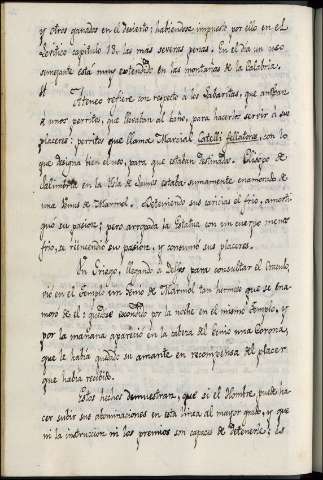 y otros ganados en el desierto; habiendose impuesto por ello en el
Levitico capitulo 18. las mas severas penas. En el dia un uso
semejante está muy extendido en las montañas de la Calabria.
Ateneo refiere con respecto á los Sibaritas, que
á unos perritos, que llevaban al baño, para hacerlos servir á sus
placeres: perritos que llama Marcial Catelli fellatores, con lo
que designa bien el uso, para que estaban destinados. de
en la Isla de Samos estaba sumamente enamorado de
una Venus de Marmol. Deteniendo sus caricias el frio, amorti-
guó su pasion; pero arropada la Estatua con un cuerpo menos
frio, se reencendió su pasion, y consumó sus placeres.
Un Griego, llegando á Delfos para consultar el Oraculo,
vió en el Templo un Genio de Marmol tan hermoso que se ena-
moró de el: quedose escondido por la noche en el mismo Templo, y
por la mañana apareció en la cabeza del Genio una Corona,
que le habia quedado su amante en recompensa del placer
que habia recibido.
Estos hechos demuestran, que si el Hombre puede ha-
cer subir sus abominaciones en esta linea al mayor grado, y que
ni la instruccion ni los premios son capaces de detenerle; los